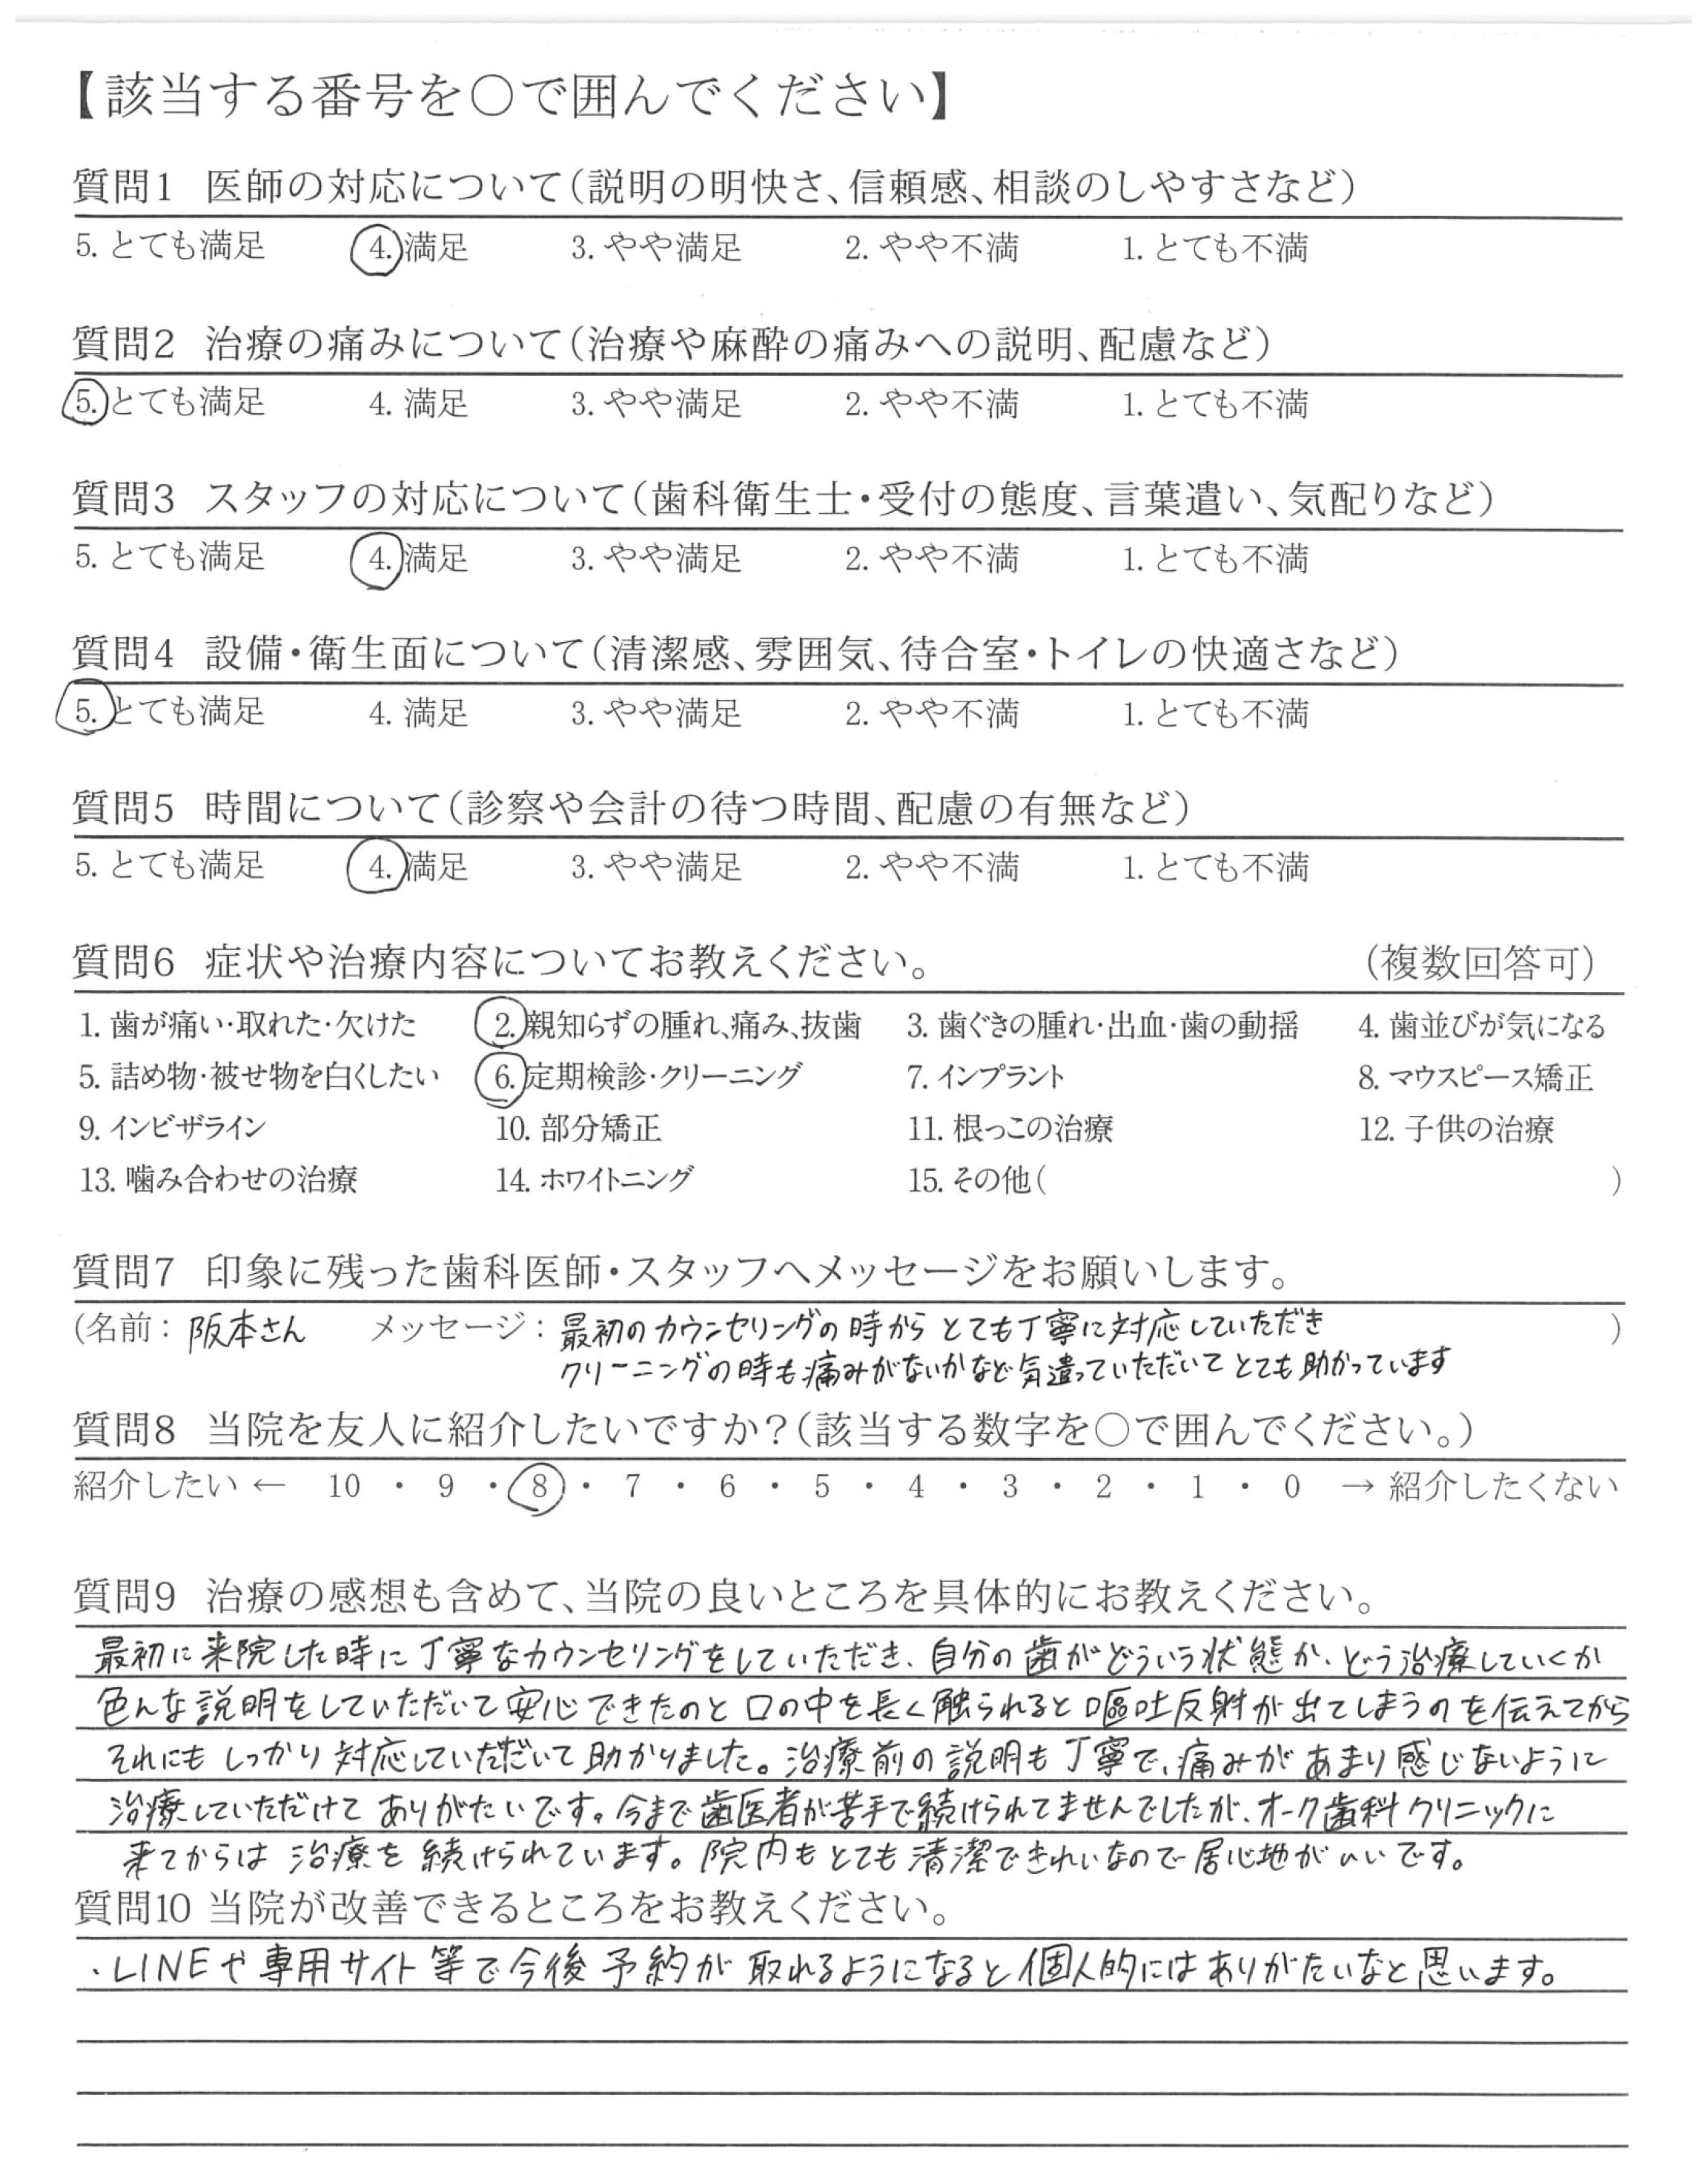 【該当する番号を○で囲んでください】
質問1 医師の対応について（説明の明快さ、信頼感、相談のしやすさなど）
5. とても満足 4. 満足 3. やや満足 2. やや不満 1. とても不満
質問2 治療の痛みについて（治療や麻酔の痛みへの説明、配慮など）
5. とても満足 4. 満足 3. やや満足 2. やや不満 1. とても不満
質問3 スタッフの対応について（歯科衛生士・受付の態度、言葉遣い、気配りなど）
5. とても満足 4. 満足 3. やや満足 2. やや不満 1. とても不満
質問4 設備・衛生面について（清潔感、雰囲気、待合室・トイレの快適さなど）
5. とても満足 4. 満足 3. やや満足 2. やや不満 1. とても不満
質問5 時間について（診察や会計の待つ時間、配慮の有無など）
5. とても満足 4. 満足 3. やや満足 2. やや不満 1. とても不満
質問6 症状や治療内容についてお教えください。 （複数回答可）
1. 歯が痛い・取れた・欠けた 2. 親知らずの腫れ、痛み、抜歯 3. 歯ぐきの腫れ・出血・歯の動揺 4. 歯並びが気になる
5. 詰め物・被せ物を白くしたい 6. 定期検診・クリーニング 7. インプラント 8. マウスピース矯正
9. インビザライン 10. 部分矯正 11. 根っこの治療 12. 子供の治療
13. 噛み合わせの治療 14. ホワイトニング 15. その他（ ）
質問7 印象に残った歯科医師・スタッフへメッセージをお願いします。
（名前：阪本さん メッセージ：最初のカウンセリングの時からとても丁寧に対応していただき ）
クリーニングの時も痛みがないかなど気遣っていただいてとても助かっています
質問8 当院を友人に紹介したいですか？（該当する数字を○で囲んでください。）
紹介したい ← 10 ・ 9 ・ 8 ・ 7 ・ 6 ・ 5 ・ 4 ・ 3 ・ 2 ・ 1 ・ 0 → 紹介したくない
質問9 治療の感想も含めて、当院の良いところを具体的にお教えください。
最初に来院した時に丁寧なカウンセリングをしていただき、自分の歯がどういう状態か、どう治療していくか
色んな説明をしていただいて安心できたのと口の中を長く触られると嘔吐反射が出てしまうのを伝えてから
それにもしっかり対応していただいて助かりました。治療前の説明も丁寧で、痛みがあまり感じないように
治療していただけてありがたいです。今まで歯医者が苦手で続けられてませんでしたが、オーク歯科クリニックに
来てからは治療を続けられています。院内もとても清潔できれいなので居心地がいいです。
質問10 当院が改善できるところをお教えください。
・LINEや専用サイト等で今後予約が取れるようになると個人的にはありがたいなと思います。